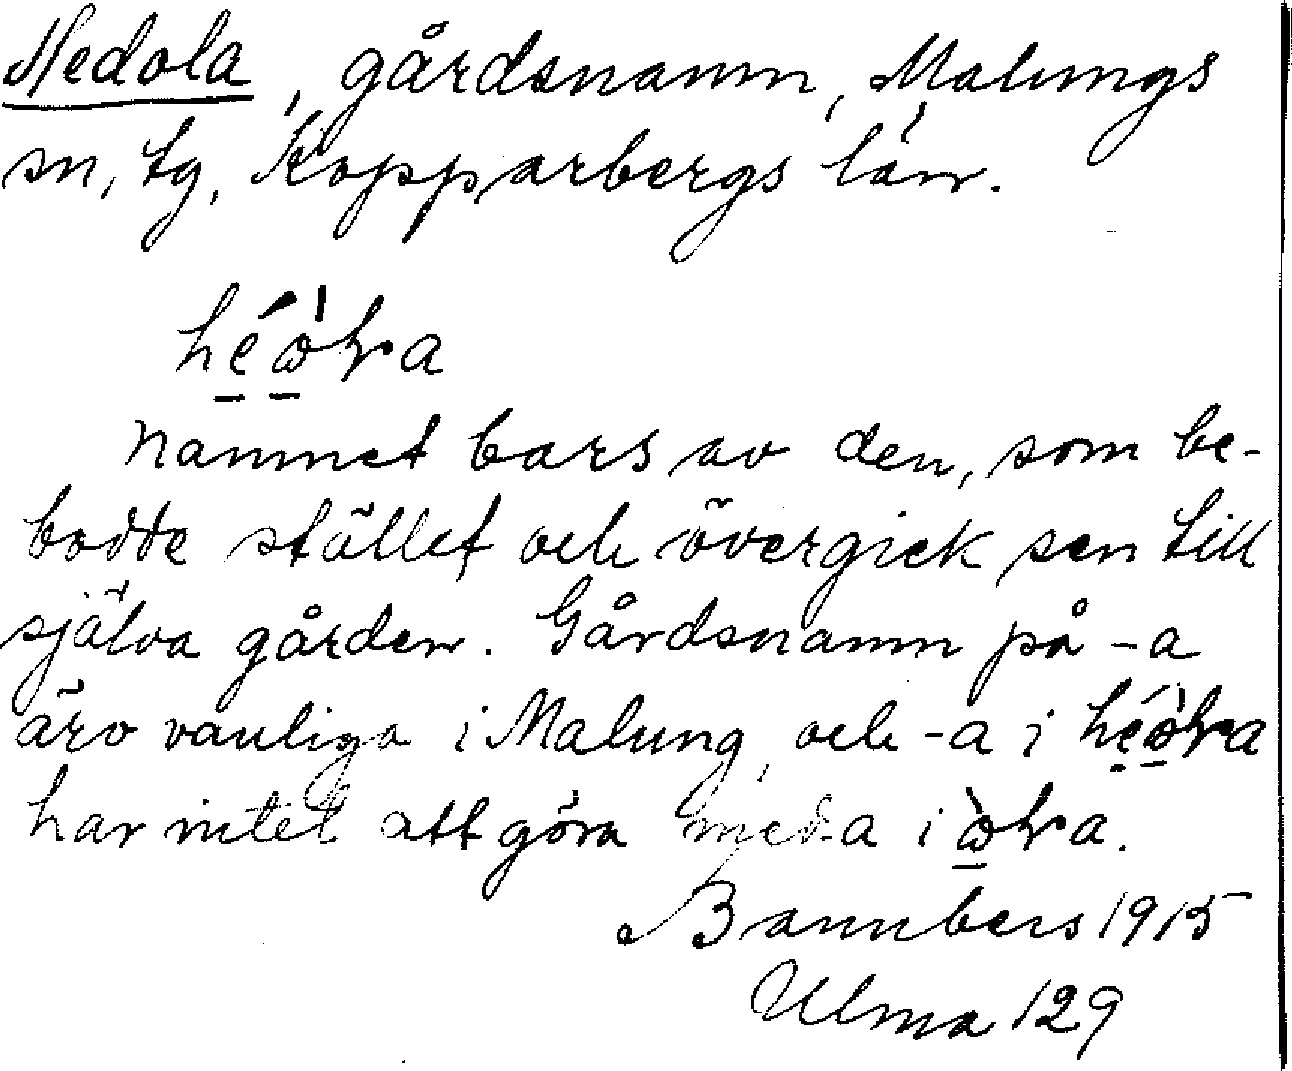 Hedola, gårdsnamn, Malungs
sn, tg, Kopparbergs län.
namnet bars av den, som be-
bodde stället och övergick sen till
själva gården. Gårdsnamn på -a
äro vanliga i Malung, och -a i
har intet att göra med -a i
Bannbers 1915
Ulma 129